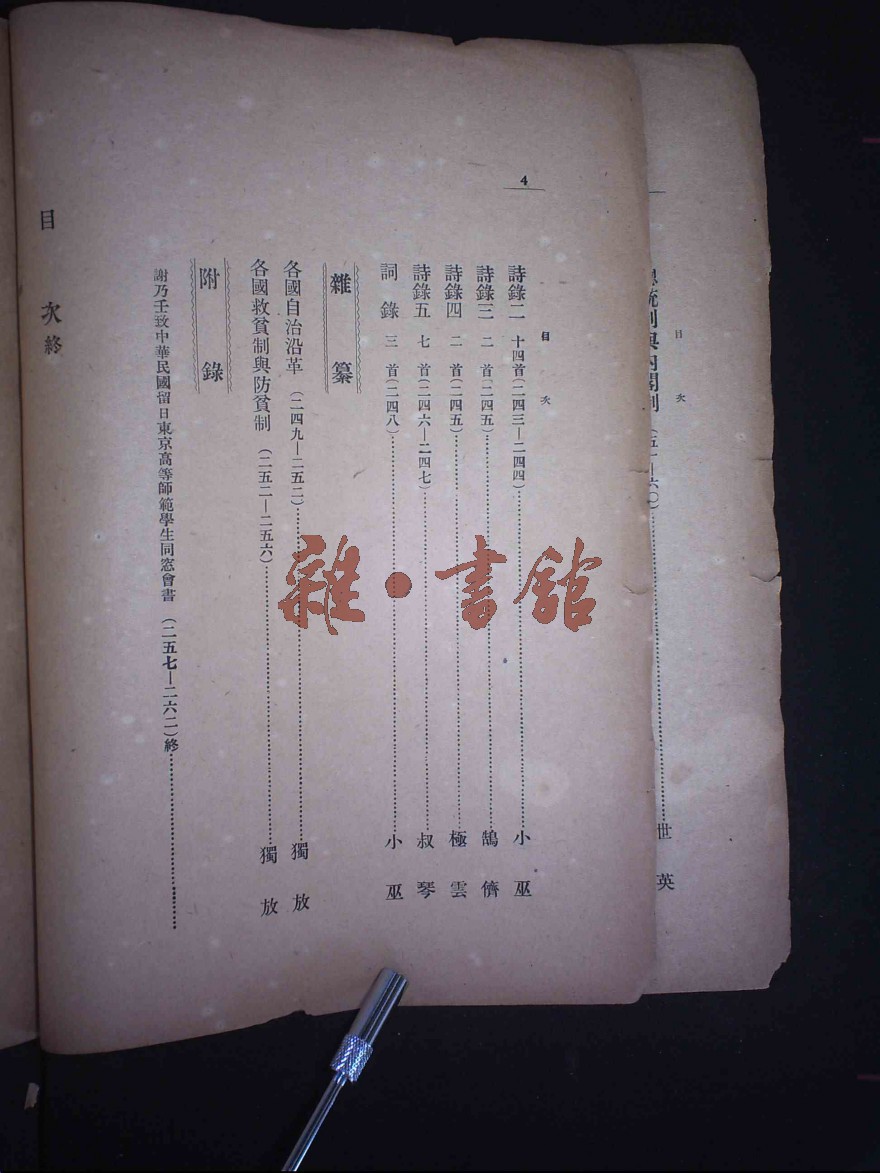 目次
4
詩錄二 十四首(二四三—二四四)……小巫
詩錄三 二首(二四五)……鵠儕
詩錄四 二首(二四五)……極雲
詩錄五 七首(二四六—二四七)……叔琴
詞錄 三首(二四八)……小巫
雜纂
各國自治沿革(二四九—二五二)……獨放
各國救貧制與防貧制(二五二—二五六)……獨放
附錄
謝乃壬致中華民國留日東京高等師範學生同窓會書(二五七—二六二)終……
目次終
目次
統制與內閣制(五一—六〇)……世英
雜·書館